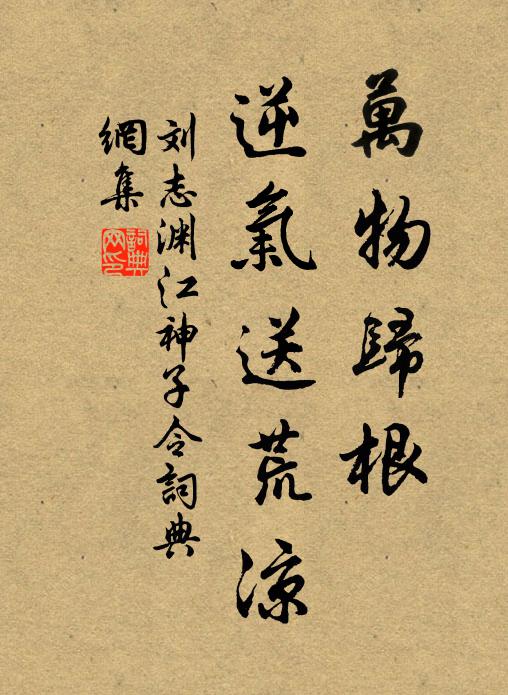 萬物歸根
逆氣送荒涼
刘志渊江神子令詞典
網集
詞典
网印